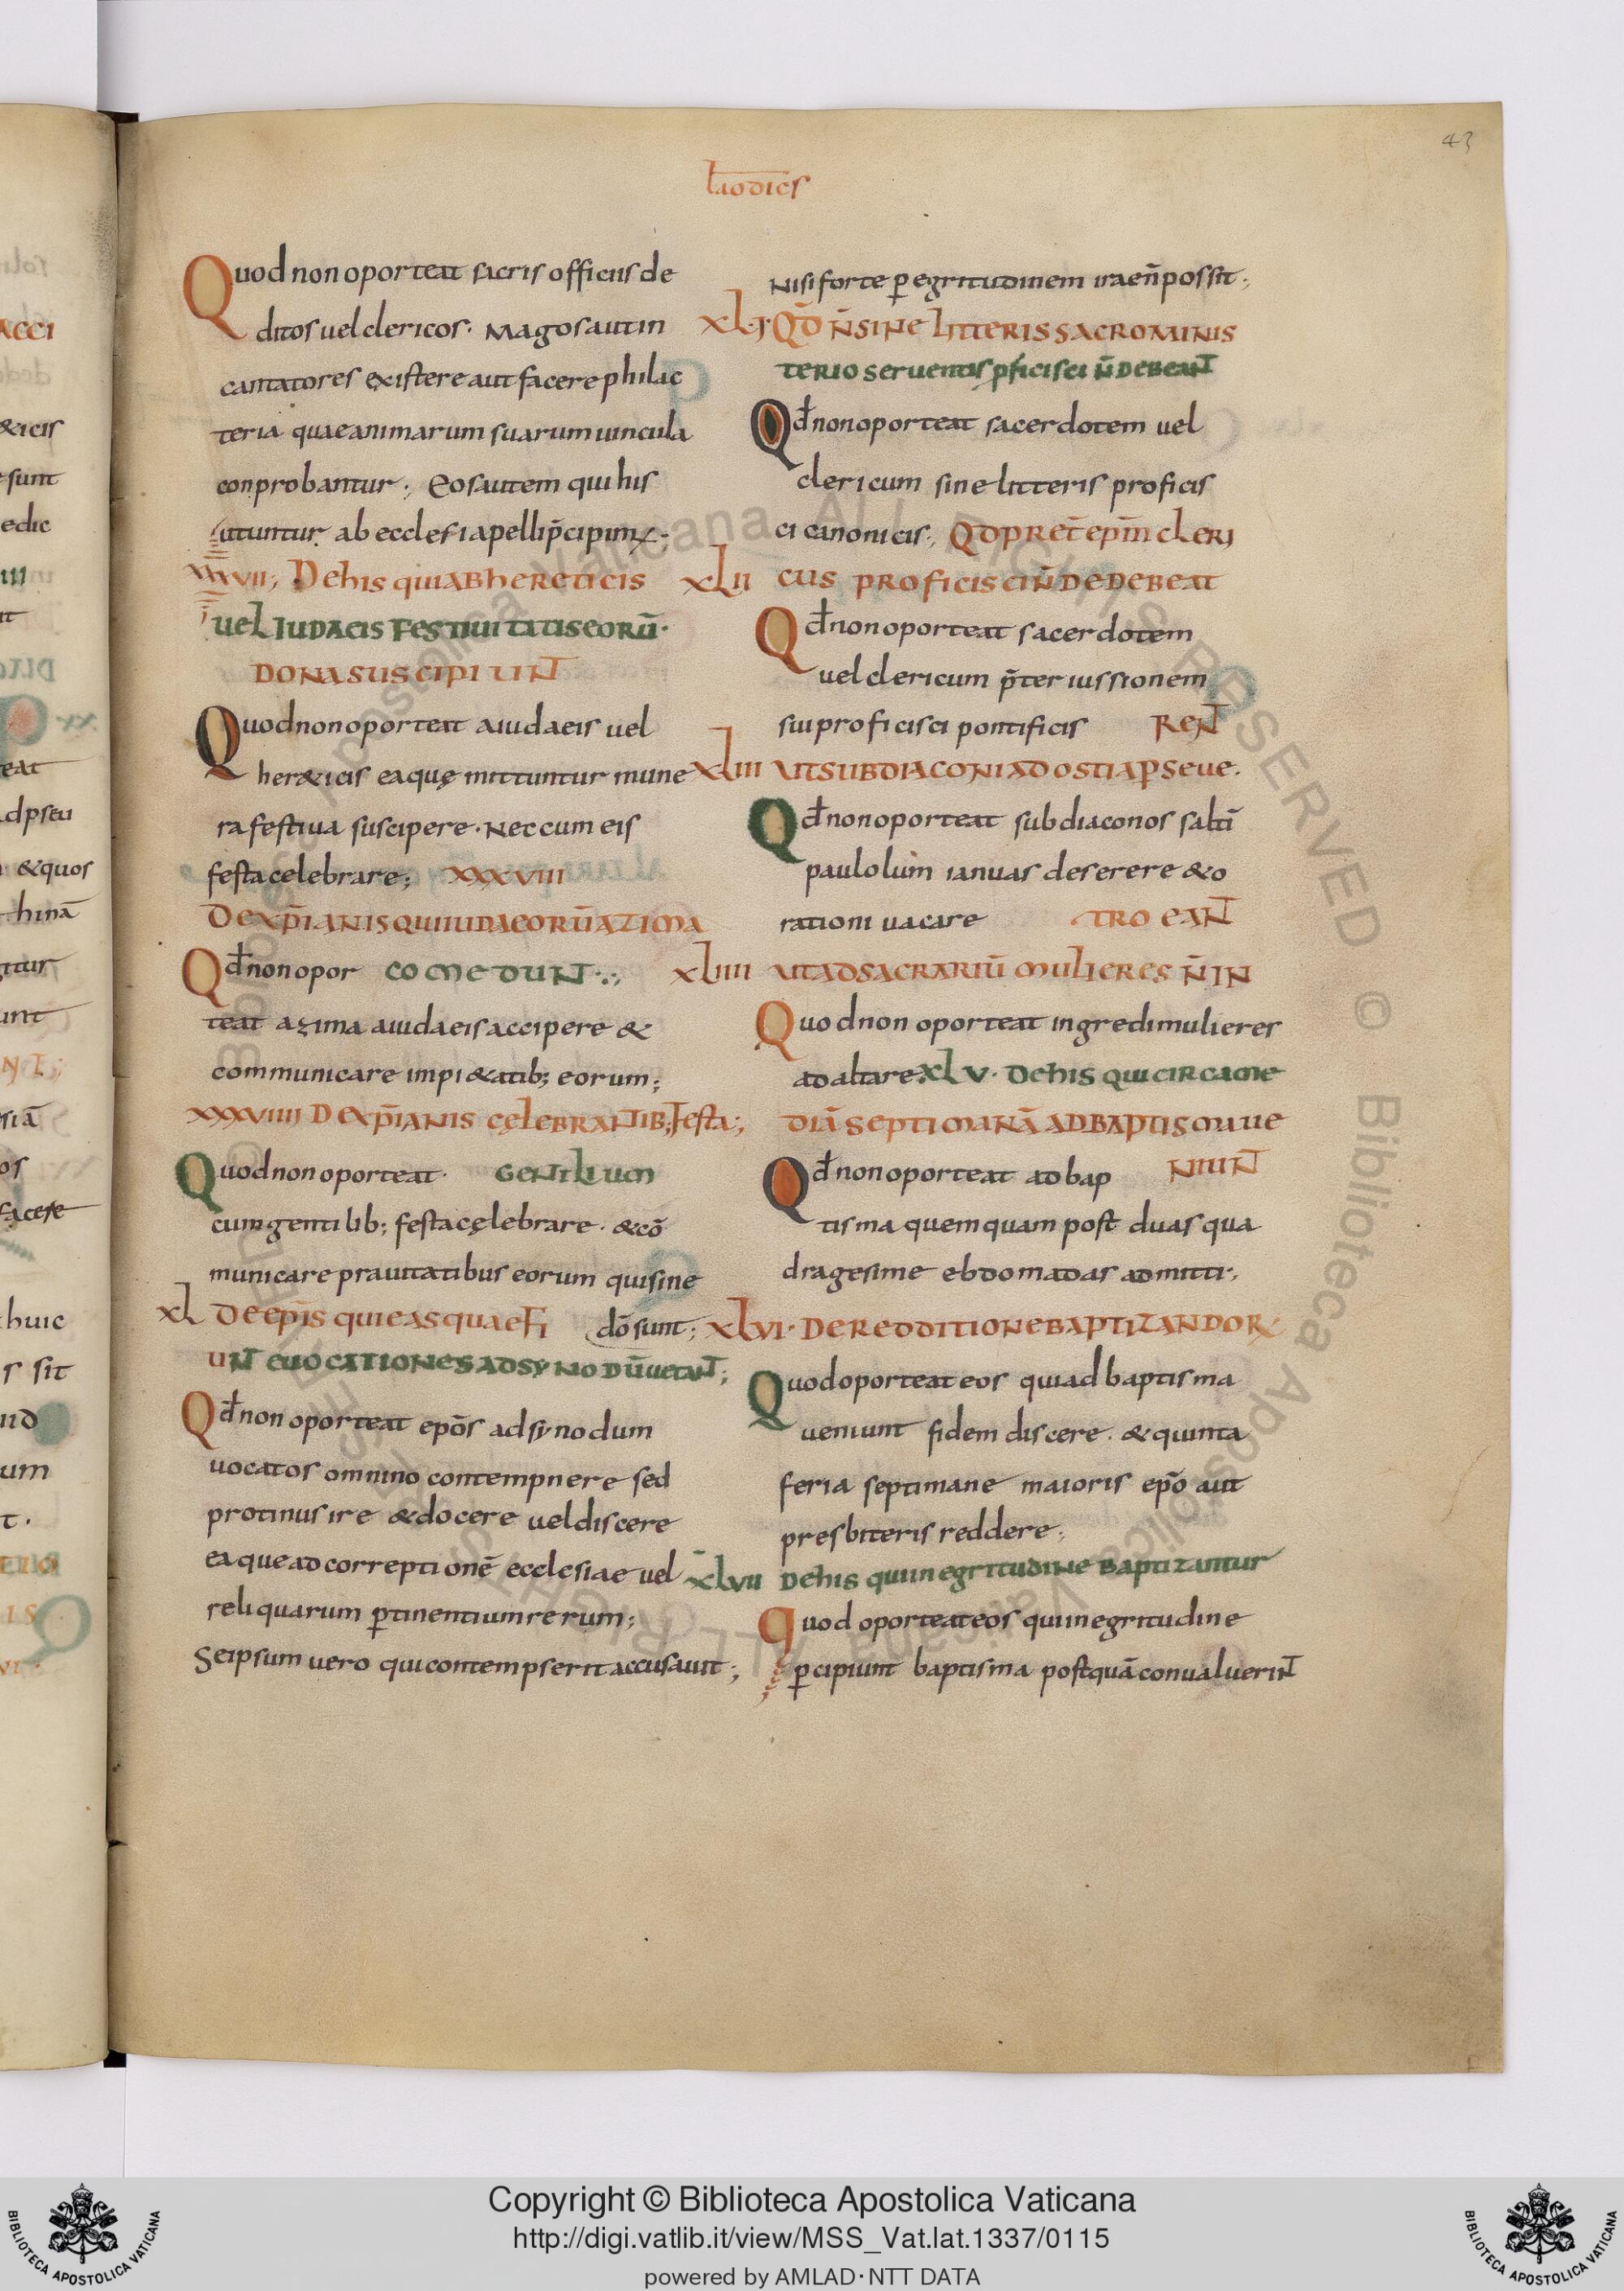 43
Laodics
Quod non oporteat sacris officiis de
ditos uel clericos. Magos aut in
cantatores existere aut facere philac
teria quae animarum suarum uincula
conprobantur; Eos autem qui his
utuntur ab ecclesia pelli p̄cipim;
XXXVII; De his qui ab hereticis
uel iudaeis festiuitatis eorū.
dona suscipiunt
Quod non oporteat a iudaeis uel
her&icis ea quę mittuntur mune
ra festiua suscipere. Nec cum eis
festa celebrare; XXXVIII
De xp̄ianis qui iudaeorū azima
Qđ non opor comedunt.;
teat azima a iudaeis accipere &
communicare impi&atib; eorum;
XXXVIIII De xp̄ianis cęlebrantib; festa;
Quod non oporteat. gentilium
cum gentilib; festa cęlebrare. & cō
municare prauitatibus eorum qui sine
dō sunt;
XL De ep̄is qui eas quae fi
unt euocationes ad synodū uetant;
Qđ non oporteat epōs ad synodum
uocatos omnino contempnere sed
protinus ire & docere uel discere
ea que ad correptionē ecclesiae uel
reliquarum p̱tinentium rerum;
Seipsum uero qui contempserit accusauit;
Nisi forte p̱ egritudinem ira en̄ possit;
XLI Qđ n̄ sine litteris sacro minis
terio seruentis p̱ficisci n̄ debeant
Qđ non oporteat sacerdotem uel
clericum sine litteris proficis
ci canonicis; Qđ pret̄ ep̄m cleri
XLII cus proficisci n̄ dedebeat
Qđ non oporteat sacerdotem
uel clericum p̄ter iussionem
sui proficisci pontificis rent
XLIII ut subdiaconi ad ostia p̱seue.
Qđ non oporteat subdiaconos saltī
paulolum ianuas deserere & o
rationi uacare troeant
XLIIII ut ad sacrariū mulieres n̄ in
Quod non oporteat ingredi mulieres
ad altare. XLV. De his qui circa me
diā septimanā ad baptismu ue
Qđ non oporteat ad bap niunt
tisma quemquam post duas qua
dragesime ebdomadas admitti;
XLVI. De redditione baptizandor
Quod oporteat eos qui ad baptisma
ueniunt fidem discere. & quinta
feria septimane maioris epō aut
presbiteris reddere;
XLVII De his qui in egritudine baptizantur
Quod oporteat eos qui in egritudine
p̱cipiunt baptisma postquā conualuerint
Copyright © Biblioteca Apostolica Vaticana
http://digi.vatlib.it/view/MSS_Vat.lat.1337/0115
powered by AMLAD·NTT DATA
BIBLIOTECA APOSTOLICA VATICANA
BIBLIOTECA APOSTOLICA VATICANA